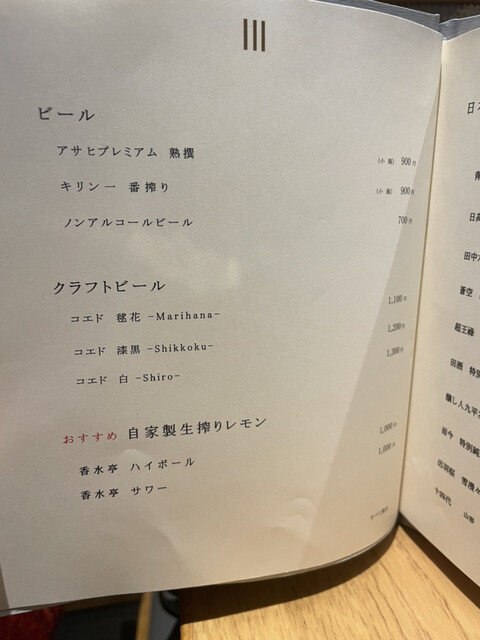 ビール
アサヒプレミアム 熟撰 (小瓶) 900円
キリン一番搾り (小瓶) 900円
ノンアルコールビール 700円
クラフトビール
コエド 毬花 -Marihana- 1,100円
コエド 漆黒 -Shikkoku- 1,200円
コエド 白 -Shiro- 1,300円
おすすめ 自家製生搾りレモン
香水亭 ハイボール 1,000円
香水亭 サワー 1,000円
日
南
日高
田中
蒼空
超王祿
田酒 特別
醸し人九平
而今 特別純
出羽桜 雪漫々
十四代 山形